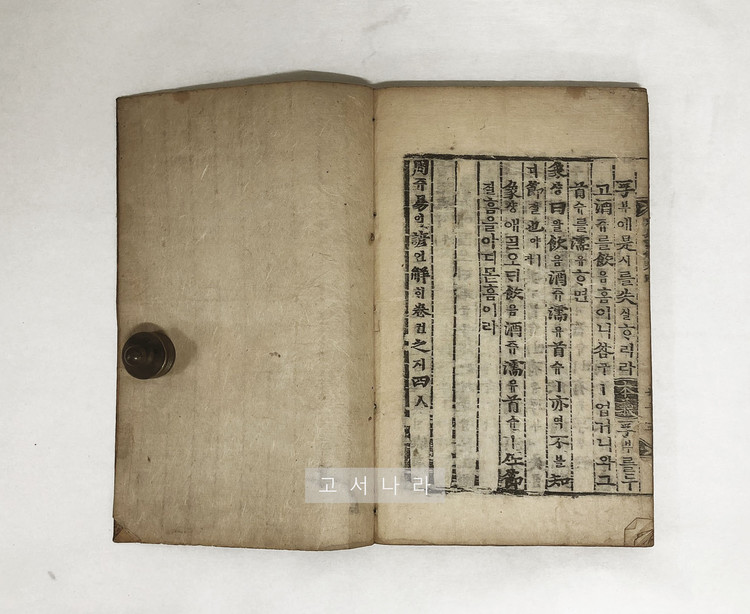 孚부애是시를失실ᄒᆞ리라 孚부를두
고酒쥬를飮음홈이니咎구ㅣ업거니와그
首슈를濡유ᄒᆞ면
象샹曰왈飮음酒쥬濡유首슈ㅣ亦역不블知
디節졀也야ㅣ라
象샹애ᄀᆞᆯ오ᄃᆡ飮음酒쥬濡유首슈ㅣᄯᅩ節
졀홈을아디몯홈이라
周쥬易역諺언解ᄒᆡ卷권之지四ᄉᆞ
고서나라